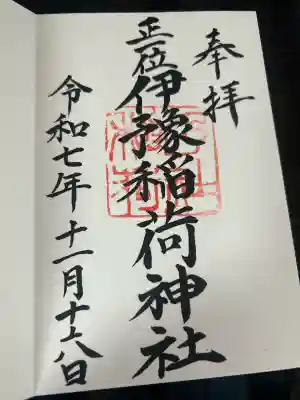 奉拝
正一位伊豫稲荷神社
令和七年十一月十六日